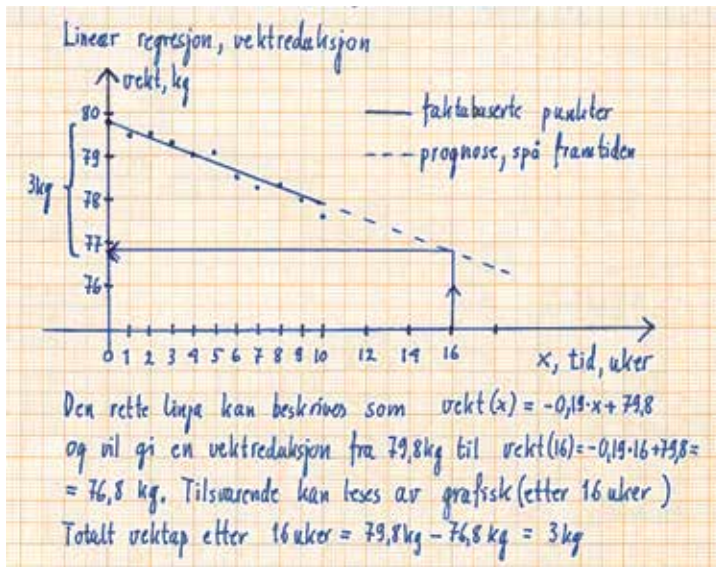 Lineær regresjon, vektreduksjon
vekt, kg
80
79
78
77
76
3kg
faktabaserte punkter
prognose, spå framtiden
0 1 2 3 4 5 6 7 8 9 10 12 14 16
x, tid, uker
Den rette linja kan beskrives som vekt(x) = -0,19·x + 79,8
og vil gi en vektreduksjon fra 79,8kg til vekt(16)=-0,19·16+79,8=
= 76,8 kg. Tilsvarende kan leses av grafisk (etter 16 uker)
Totalt vektap etter 16 uker = 79,8kg - 76,8 kg = 3kg